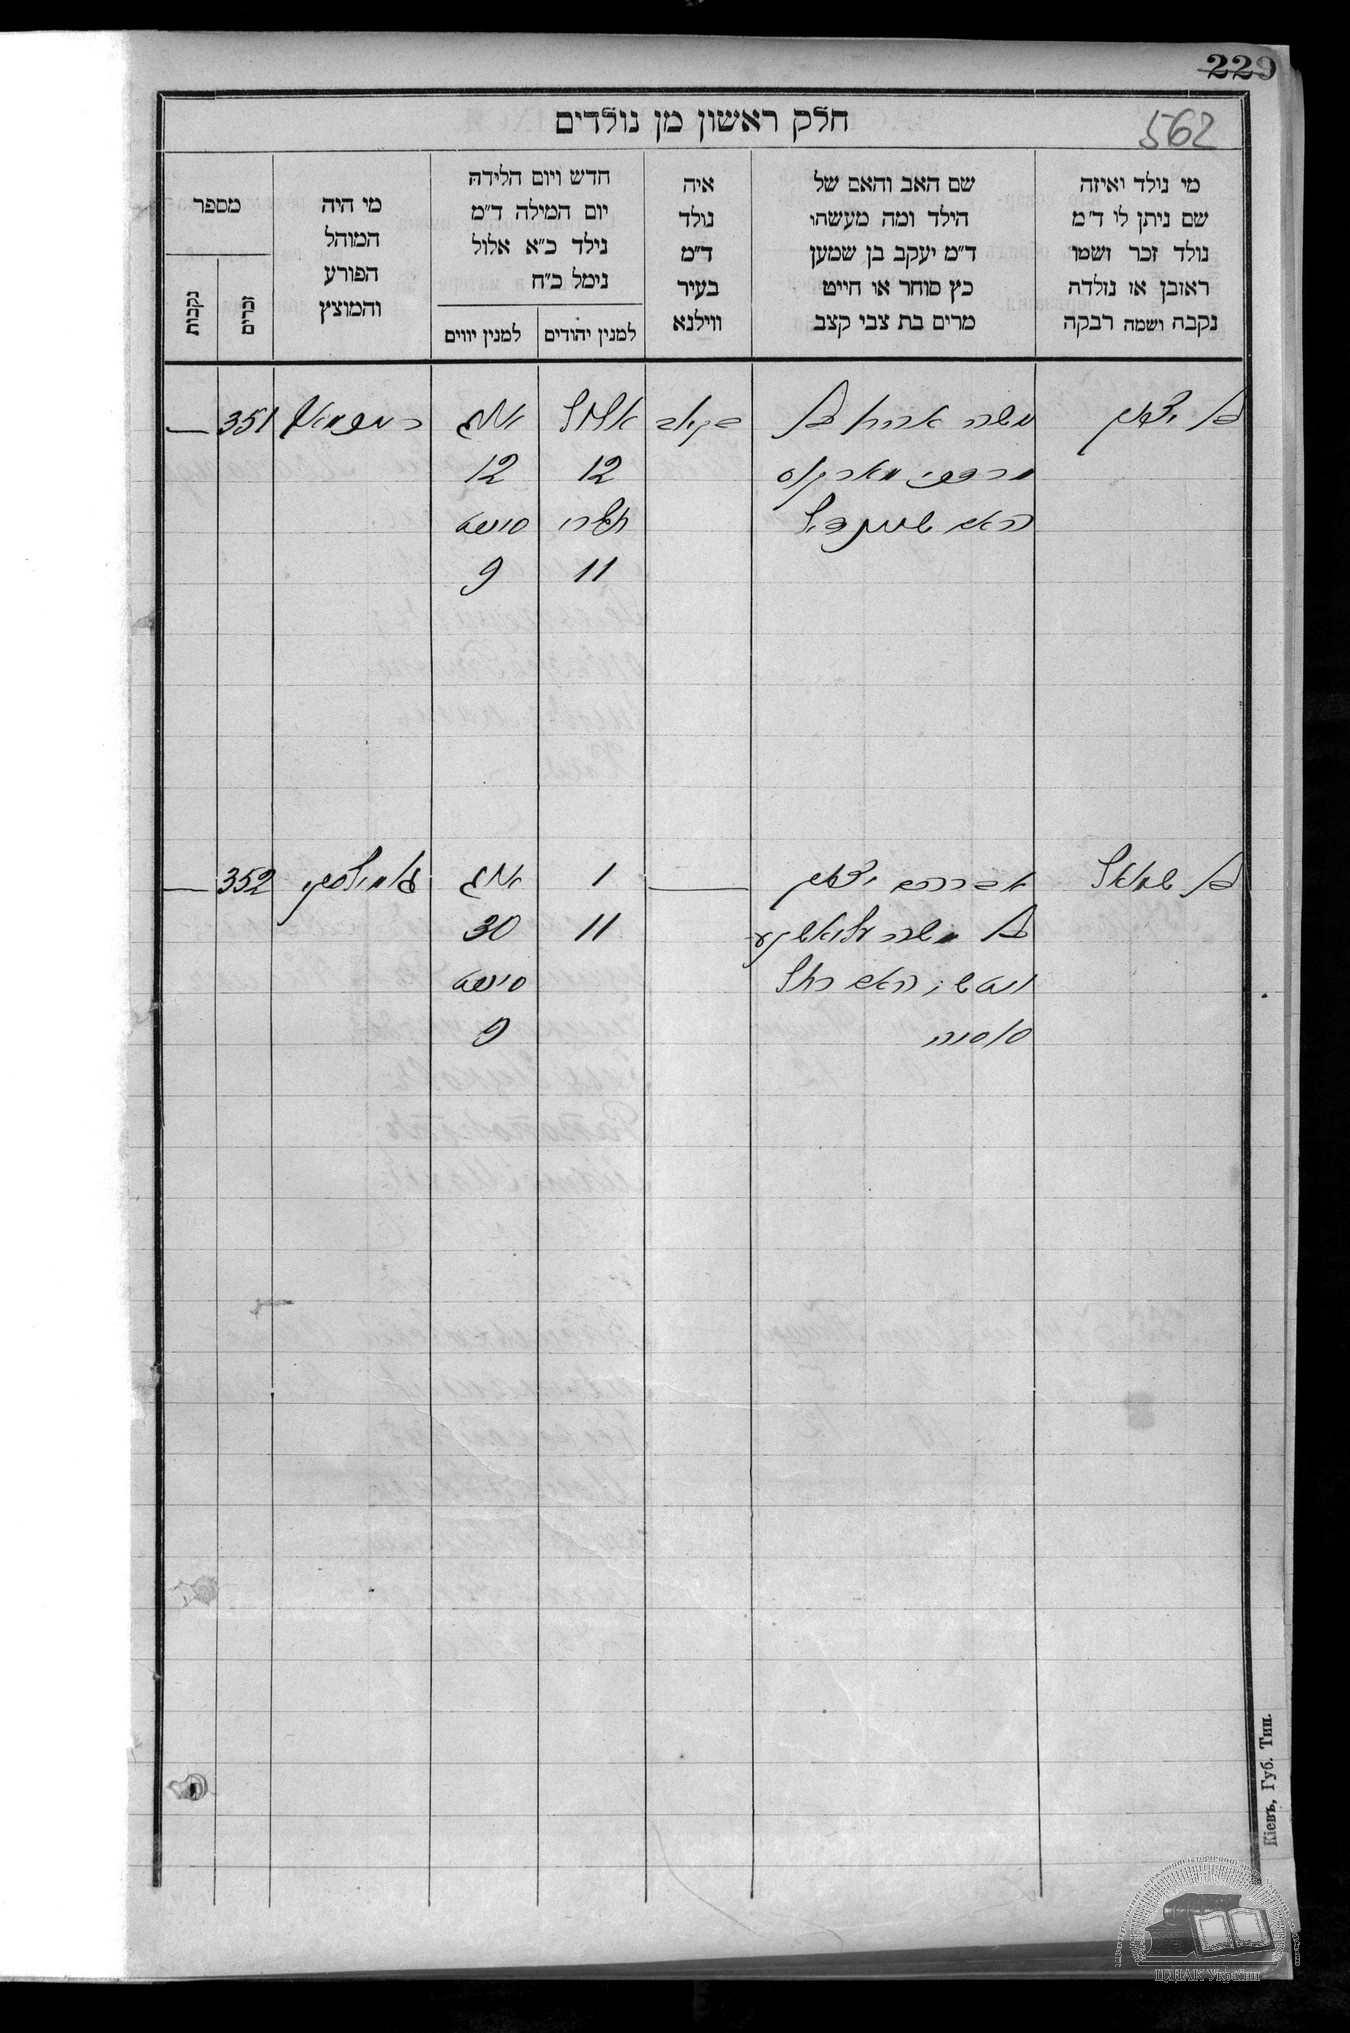 229
562
חלק ראשון מן נולדים
מי נולד ואיזה
שם ניתן לו ד״מ
נולד זכר ושמו
ראובן או נולדה
נקבה ושמה רבקה
שם האב והאם של
הילד ומה מעשהו
ד״מ יעקב בן שמען
כץ סוחר או חייט
מרים בת צבי קצב
איה
נולד
ד״מ
בעיר
ווילנא
חדש ויום הלידה
יום המילה ד״מ
נילד כ״א אלול
נימל כ״ח
למנין יהודים
למנין יווים
מי היה
המוהל
הפורע
והמוצץ
מספר
זכרים
נקבות
בן יצחק
משה אהרן בן
מרדכי
האם
בקיוב
אלול
12
תשרי
11
אווג
12
סינט
9
351
—
בן שמואל
אברהם יצחק
בן משה
האם רחל
—
1
11
אווג
30
סינט
9
352
—
Кіевъ, Губ. Тип.
ЦДІАК України